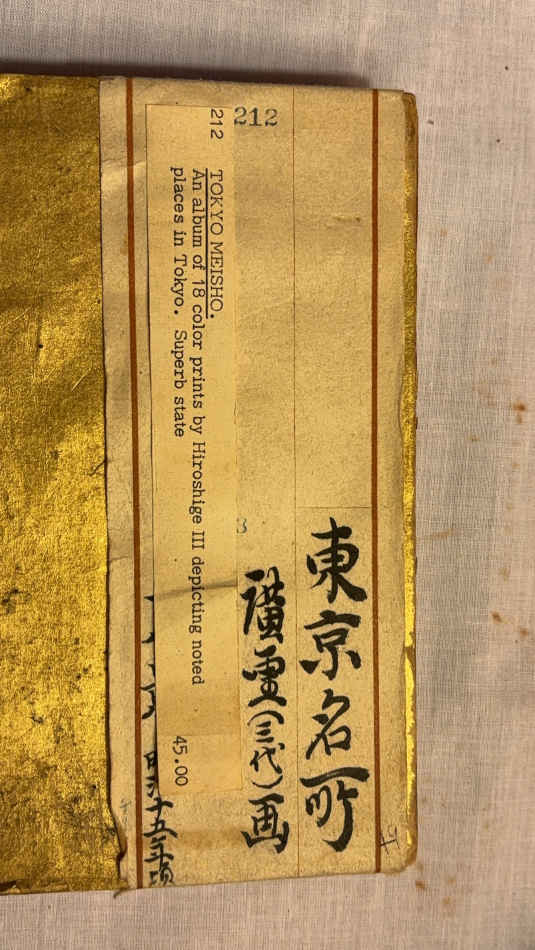 212
212
TOKYO MEISHO.
An album of 18 color prints by Hiroshige III depicting noted
places in Tokyo. Superb state
45.00
東京名所
廣重(三代)画
十五年頃